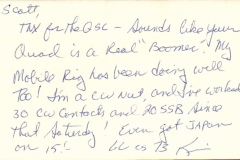 Scott,
TNX for the QSL - Sounds like your
Quad is a Real "Boomer". My
Mobile Rig has been doing well
Too! I'm a CW Nut, and I've worked
30 CW Contacts and 20 SSB Since
That Saturday! Even got JAPAN
on 15!